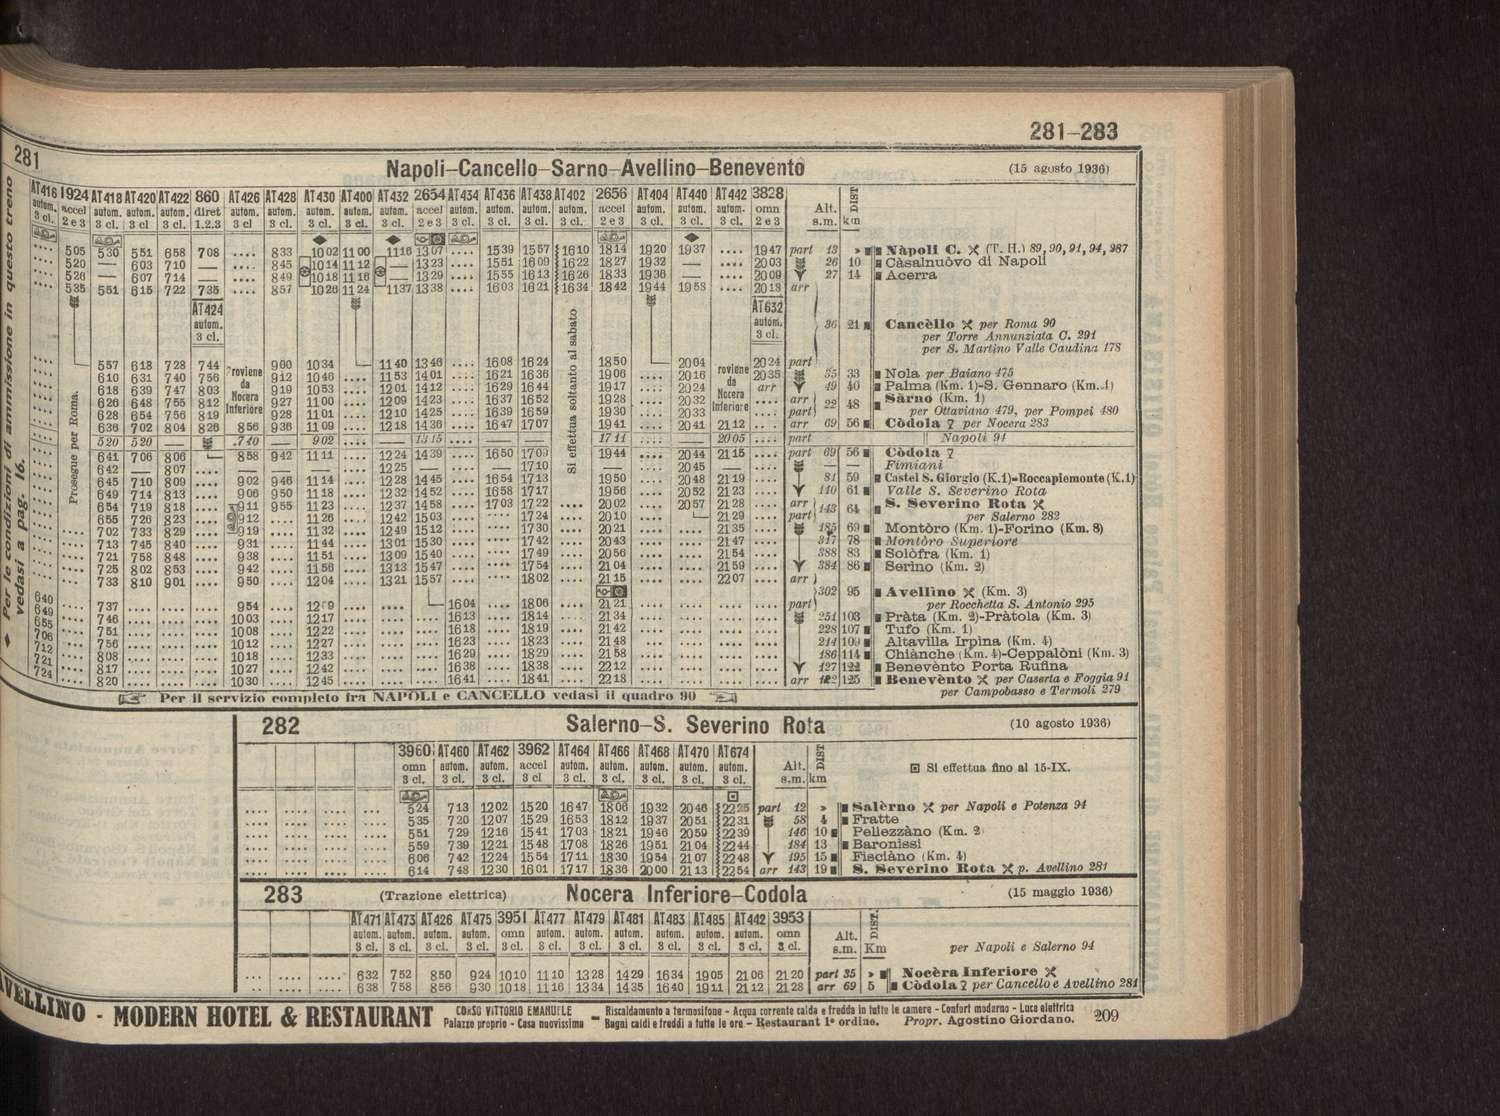 281-283
281 Napoli-Cancello-Sarno-Avellino-Benevento (15 agosto 1936)
AT416 1924 AT418 AT420 AT422 860 AT426 AT428 AT430 AT400 AT432 2654 AT434 AT436 AT438 AT402 2656 AT404 AT440 AT442 3828
autom. accel autom. autom. autom. diret autom. autom. autom. autom. autom. accel autom. autom. autom. autom. accel autom. autom. autom. omn Alt. DIST
3 cl. 2 e 3 3 cl. 3 cl 3 cl. 1.2.3 3 cl 3 cl. 3 cl. 3 cl. 3 cl. 2 e 3 3 cl. 3 cl. 3 cl. 3 cl. 2 e 3 3 cl. 3 cl. 3 cl. 2 e 3 s.m. km
.... 505 530 551 658 708 .... 833 1002 1100 1116 1307 .... 1539 1557 1610 1814 1920 1937 .... 1947 part 13 » Nàpoli C. (T. H.) 89, 90, 91, 94, 987
.... 520 — 603 710 — .... 845 1014 1112 — 1323 .... 1551 1609 1622 1827 1932 — .... 2003 26 10 Càsalnuòvo di Napoli
.... 526 — 607 714 — .... 849 1018 1116 — 1329 .... 1555 1613 1626 1833 1936 — .... 2009 27 14 Acerra
.... 535 551 615 722 735 .... 857 1026 1124 1137 1338 .... 1603 1621 1634 1842 1944 1953 .... 2018 arr
AT424 AT632
autom. autom. 36 21 Cancèllo per Roma 90
3 cl. 3 cl. per Torre Annunziata C. 291
per S. Martino Valle Caudina 178
.... 557 618 728 744 900 1034 1140 1346 .... 1608 1624 1850 2004 2024 part
.... 610 631 740 756 912 1046 .... 1153 1401 .... 1621 1636 1906 .... 2016 2035 35 33 Nola per Baiano 475
.... 618 639 747 803 919 1053 .... 1201 1412 .... 1629 1644 1917 .... 2024 arr 49 40 Palma (Km. 1)-S. Gennaro (Km. 1)
.... 626 648 755 812 927 1100 .... 1209 1423 .... 1637 1652 1928 .... 2032 .... arr 22 48 Sàrno (Km. 1)
.... 628 654 756 819 928 1101 .... 1210 1425 .... 1639 1659 1930 .... 2033 .... part per Ottaviano 479, per Pompei 480
.... 636 702 804 826 856 936 1109 .... 1218 1436 .... 1647 1707 1941 .... 2041 2112 .... arr 69 56 Còdola per Nocera 283
520 520 — 740 — 902 .... — 1315 .... — — 1711 .... — 2005 .... part Napoli 94
641 706 806 858 942 1111 .... 1224 1439 .... 1650 1709 1944 .... 2044 2115 .... part 69 56 Còdola
642 — 807 .... — — — .... 1225 — .... — 1710 — .... 2045 — .... — — Fimiani
645 710 809 .... 902 946 1114 .... 1228 1445 .... 1654 1713 1950 .... 2048 2119 .... 81 59 Castel S. Giorgio (K.1)-Roccapiemonte (K.1)
649 714 813 .... 906 950 1118 .... 1232 1452 .... 1658 1717 1956 .... 2052 2123 .... 140 61 Valle S. Severino Rota
654 719 818 .... 911 955 1123 .... 1237 1458 .... 1703 1722 .... 2002 .... 2057 2128 .... arr 143 64 S. Severino Rota
655 726 823 .... 912 .... 1126 .... 1242 1503 .... .... 1724 .... 2010 .... 2129 .... part per Salerno 282
.... 702 733 829 .... 919 .... 1132 .... 1249 1512 .... .... 1730 .... 2021 .... .... 2135 .... 185 69 Montòro (Km. 1)-Forino (Km. 8)
.... 713 745 840 .... 931 .... 1144 .... 1301 1530 .... .... 1742 .... 2043 .... .... 2147 .... 317 78 Montòro Superiore
.... 721 758 848 .... 938 .... 1151 .... 1309 1540 .... .... 1749 .... 2056 .... .... 2154 .... 388 83 Solòfra (Km. 1)
.... 725 802 853 .... 942 .... 1156 .... 1313 1547 .... .... 1754 .... 2104 .... .... 2159 .... 384 86 Serino (Km. 2)
.... 733 810 901 .... 950 .... 1204 .... 1321 1557 .... .... 1802 .... 2115 .... .... 2207 .... arr
302 95 Avellino (Km. 3)
640 .... 737 .... .... .... 954 .... 1209 .... .... 1604 .... 1806 .... 2121 .... .... .... .... part per Rocchetta S. Antonio 295
649 .... 746 .... .... .... 1003 .... 1217 .... .... .... 1613 .... 1814 .... 2134 .... .... .... .... 251 103 Pràta (Km. 2)-Pràtola (Km. 3)
655 .... 751 .... .... .... 1008 .... 1222 .... .... .... 1618 .... 1819 .... 2142 .... .... .... .... 228 107 Tufo (Km. 1)
706 .... 756 .... .... .... 1012 .... 1227 .... .... .... 1623 .... 1823 .... 2148 .... .... .... .... 214 109 Altavilla Irpina (Km. 4)
712 .... 808 .... .... .... 1018 .... 1233 .... .... .... 1629 .... 1829 .... 2158 .... .... .... .... 186 114 Chiànche (Km. 4)-Ceppalòni (Km. 3)
721 .... 817 .... .... .... 1027 .... 1242 .... .... .... 1638 .... 1838 .... 2212 .... .... .... .... 127 122 Benevènto Porta Rufina
724 .... 820 .... .... .... 1030 .... 1245 .... .... .... 1641 .... 1841 .... 2218 .... .... .... .... arr 125 Benevènto per Caserta e Foggia 91
per Campobasso e Termoli 279
Prosegue per Roma.
Proviene da Nocera Inferiore
Si effettua soltanto al sabato
proviene da Nocera Inferiore
◆ Per le condizioni di ammissione in questo treno
vedasi a pag. 16.
Per il servizio completo fra NAPOLI e CANCELLO vedasi il quadro 90
282 Salerno-S. Severino Rota (10 agosto 1936)
3960 AT460 AT462 3962 AT464 AT466 AT468 AT470 AT674
omn autom. autom. accel autom. autom. autom. autom. autom. Alt. DIST Si effettua fino al 15-IX.
3 cl. 3 cl. 3 cl. 3 cl 3 cl. 3 cl. 3 cl. 3 cl. 3 cl. s.m. km
.... .... .... .... 524 713 1202 1520 1647 1806 1932 2046 2225 part 12 » Salèrno per Napoli e Potenza 94
.... .... .... .... 535 720 1207 1529 1653 1812 1937 2051 2231 58 4 Fratte
.... .... .... .... 551 729 1216 1541 1703 1821 1946 2059 2239 146 10 Pellezzàno (Km. 2)
.... .... .... .... 559 739 1221 1548 1708 1826 1951 2104 2244 184 13 Baronissi
.... .... .... .... 606 742 1224 1554 1711 1830 1954 2107 2248 195 15 Fisciàno (Km. 4)
.... .... .... .... 614 748 1230 1601 1717 1836 2000 2113 2254 arr 143 19 S. Severino Rota p. Avellino 281
283 (Trazione elettrica) Nocera Inferiore-Codola (15 maggio 1936)
AT471 AT473 AT426 AT475 3951 AT477 AT479 AT481 AT483 AT485 AT442 3953
autom. autom. autom. autom. omn autom. autom. autom. autom. autom. autom. omn Alt. DIST.
3 cl. 3 cl. 3 cl. 3 cl. 3 cl. 3 cl. 3 cl. 3 cl. 3 cl. 3 cl. 3 cl. 3 cl. s.m. Km per Napoli e Salerno 94
... .... .... 632 752 850 924 1010 1110 1328 1429 1634 1905 2106 2120 part 35 » Nocèra Inferiore
... .... .... 638 758 856 930 1018 1116 1334 1435 1640 1911 2112 2128 arr 69 5 Còdola per Cancello e Avellino 281
AVELLINO - MODERN HOTEL & RESTAURANT CORSO VITTORIO EMANUELE - Riscaldamento a termosifone - Acqua corrente calda e fredda in tutte le camere - Confort moderno - Luce elettrica
Palazzo proprio - Casa nuovissima Bagni caldi e freddi a tutte le ore - Restaurant 1º ordine. Propr. Agostino Giordano. 209